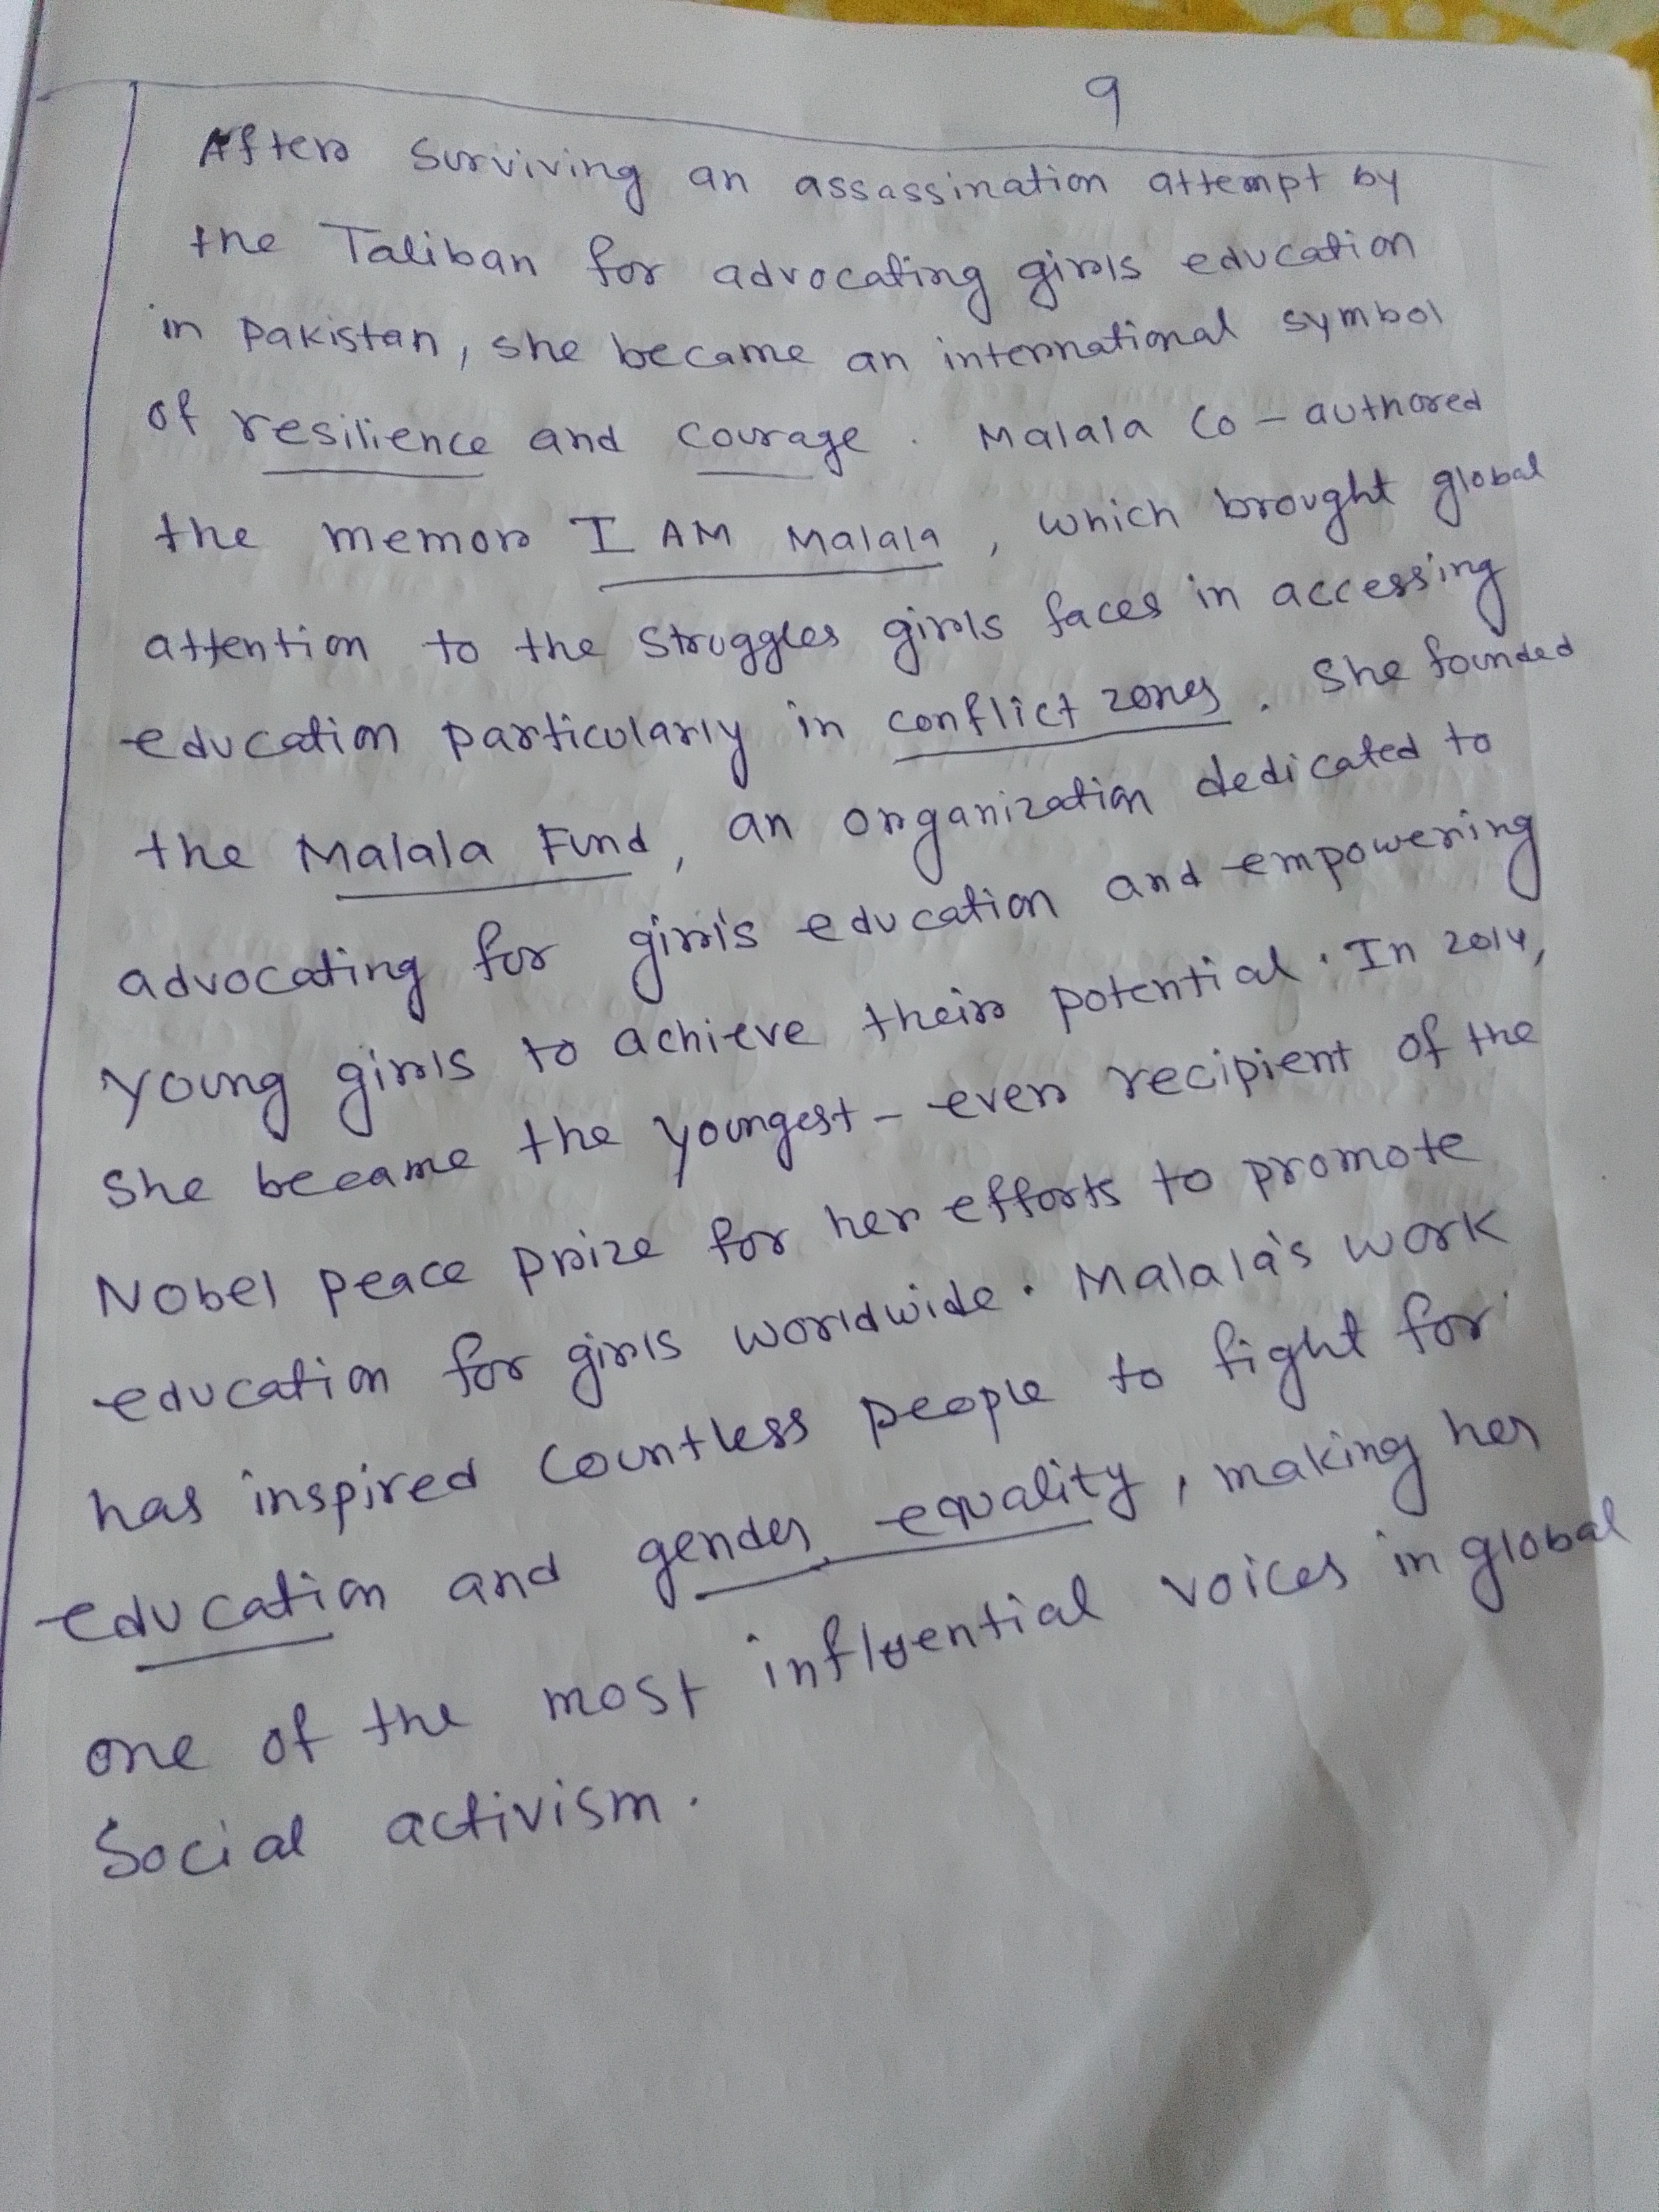 9
After Surviving an assassination attempt by
the Taliban for advocating girls education
in Pakistan, she became an international symbol
of resilience and courage. Malala Co-authored
the memor I AM Malala, which brought global
attention to the struggles girls faces in accessing
education particularly in conflict zones. She founded
the Malala Fund, an organization dedicated to
advocating for girl's education and empowering
young girls to achieve their potential. In 2014,
She became the youngest-ever recipient of the
Nobel peace prize for her efforts to promote
education for girls worldwide. Malala's work
has inspired Countless people to fight for
education and gender equality, making her
one of the most influential voices in global
Social activism.